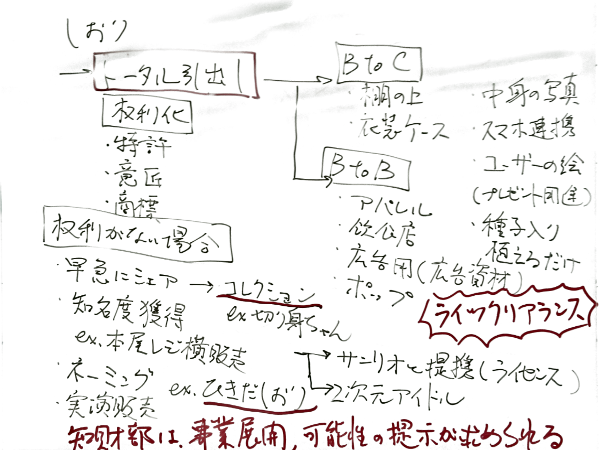 しおり
→ トータル引出し
権利化
・特許
・意匠
・商標
権利がない場合
・早急にシェア → コレクション
ex 切り身ちゃん
・知名度獲得
ex. 本屋レジ横販売
・ネーミング ex. ひきだしおり
・実演販売
→ サンリオと提携(ライセンス)
→ 2次元アイドル
B to C
・棚の上
・衣装ケース
B to B
・アパレル
・飲食店
・広告用(広告資材)
・ポップ
・中身の写真
・スマホ連携
・ユーザーの絵
(プレゼント用途)
・種子入り
植えるだけ
ライツクリアランス
知財部は、事業展開、可能性の提示が求められる